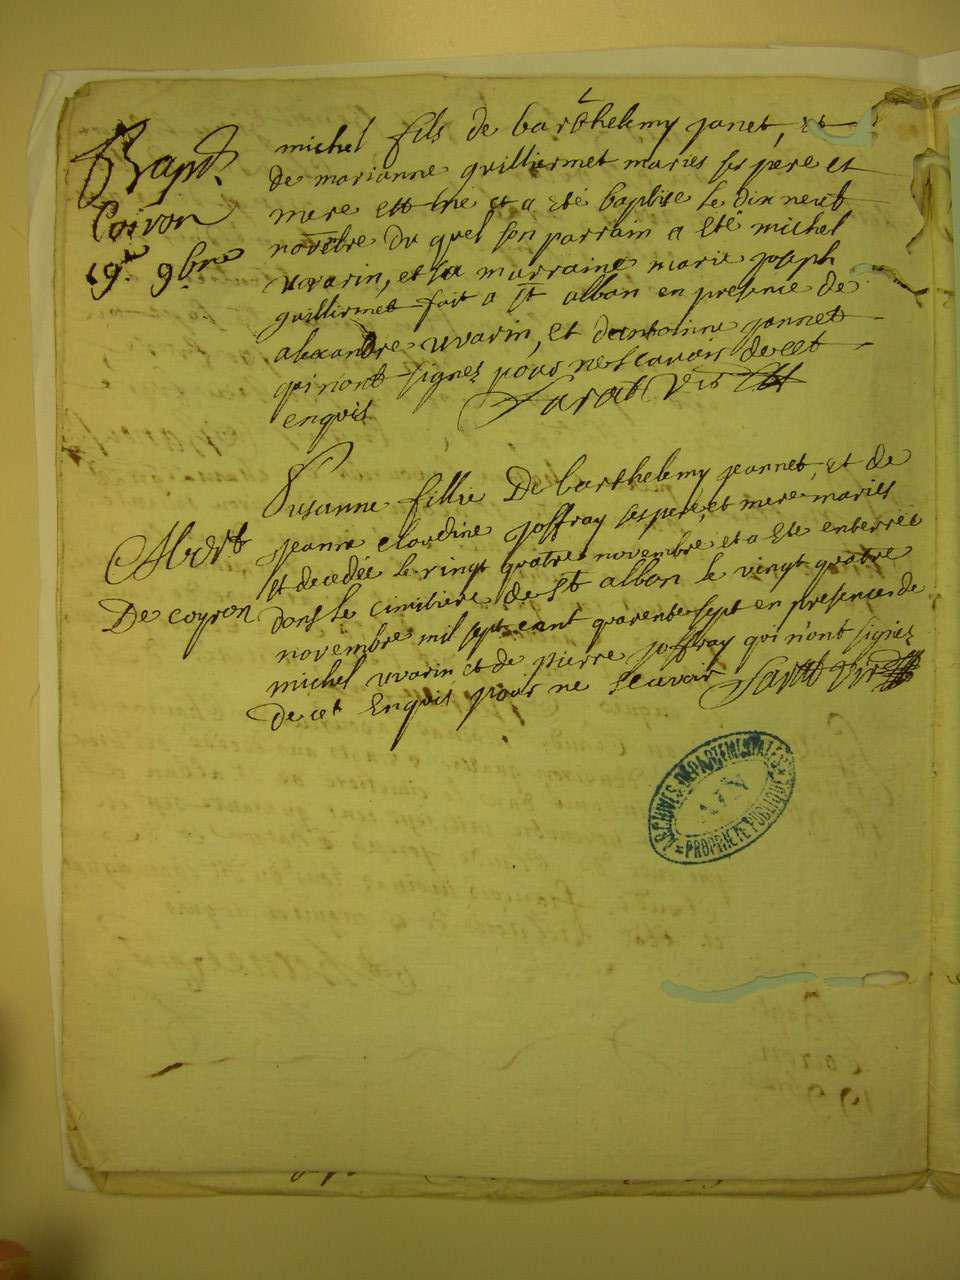 Bapt.
Coiron
19.e 9bre
michel fils de barthelemy janet, et
de marianne guilliermet maries ses pere et
mere est née et a eté baptise le dix neuf
novēbre du quel son parrain a eté michel
uvarin, et sa marraine marie joseph
guillirmet fait a st alban en presence de
alexandre uvarin, et dantoinne jannet
qui nont signez pour ne scavoir de cet
enquis Sarat vic
Mort
De coyron
Susanne fillie De barthelemy jeannet, et de
jeanne claudine joffray ses pere, et mere maries
et decedée le vingt quatre novembre et a ete enterrée
dans le cimitiere de st alban le vingt quatre
novembre mil sept cent quarente sept en presence de
michel uvarin et de pierre joffray qui n'ont signez
de cet Enquis pour ne scavoir Sarat vic
ARCHIVES DÉPARTEMENTALES
AIN
PROPRIÉTÉ PUBLIQUE